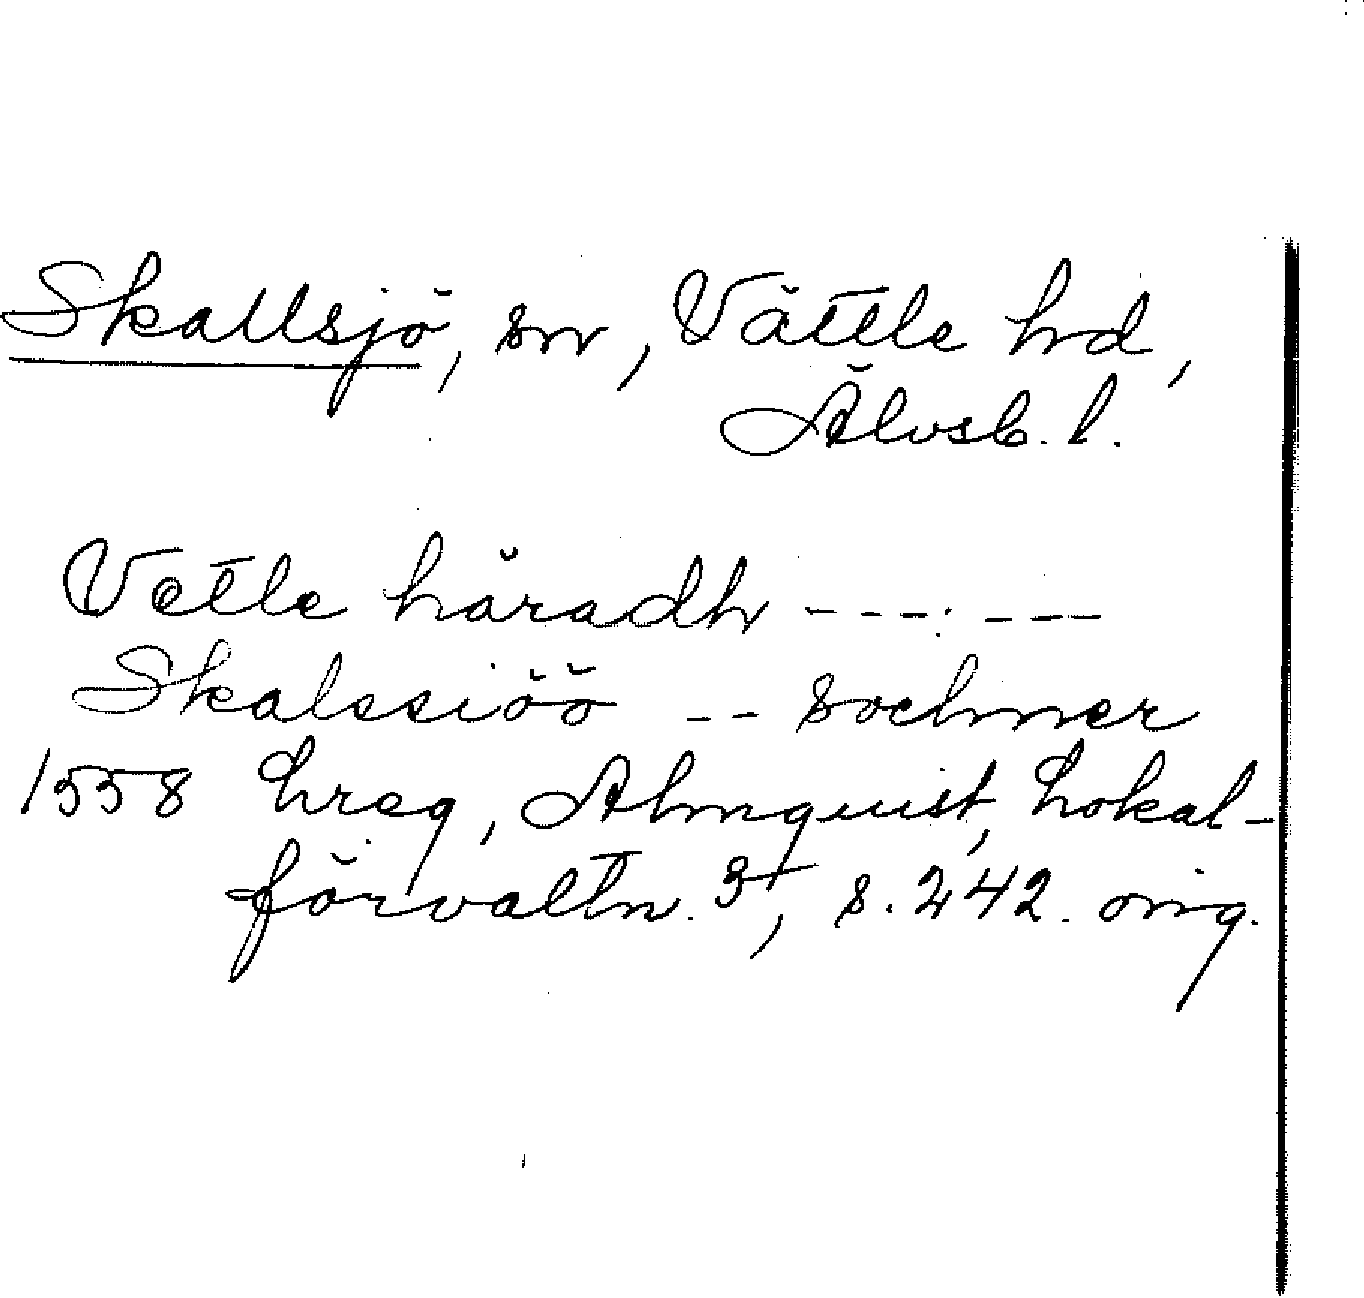 Skallsjö, sn, Vättle hd,
Älvsb. l.
Vetle häradh --- ---
Skalssiöö -- sochner
1558 hreg, Almquist, Lokal-
förvaltn. 3, s. 242. orig.